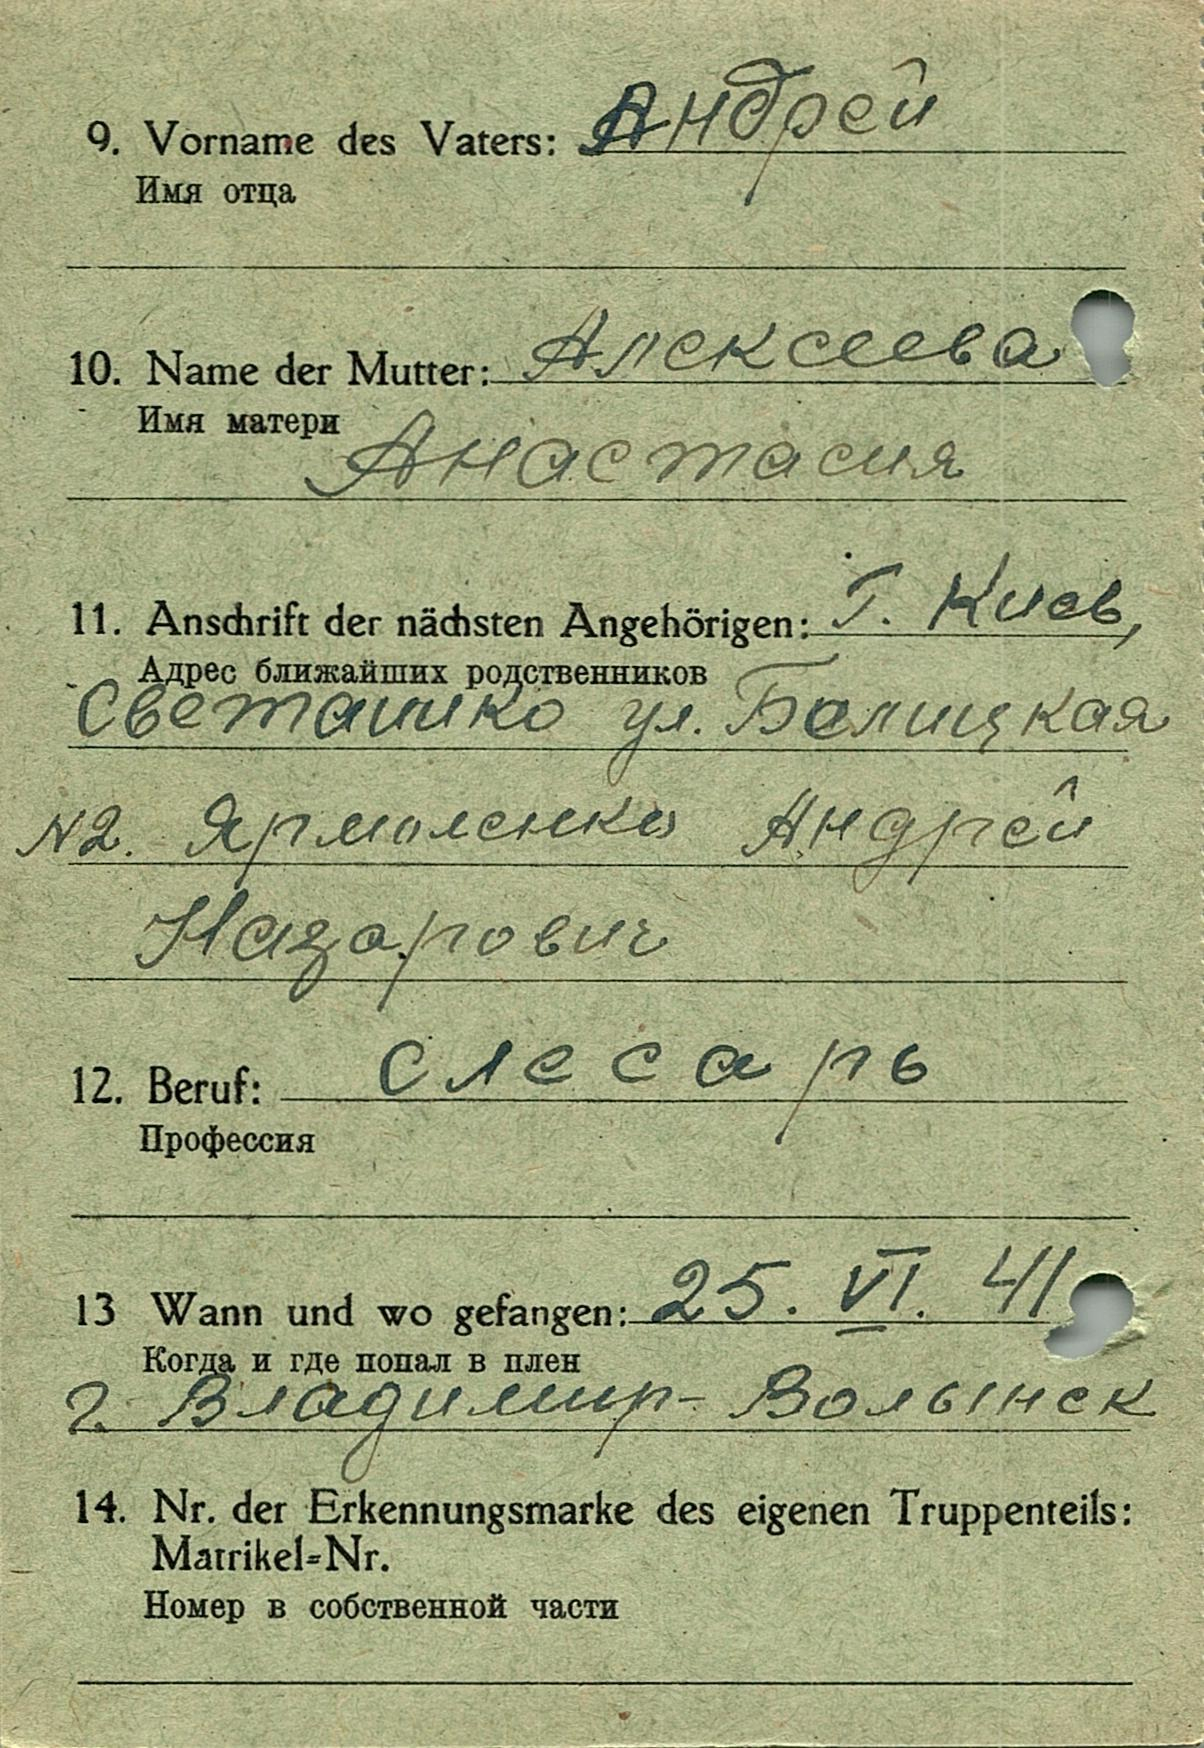 9. Vorname des Vaters: Андрей
Имя отца
10. Name der Mutter: Алексеева
Имя матери
Анастасия
11. Anschrift der nächsten Angehörigen: Г. Киев,
Адрес ближайших родственников
Светашко ул. Белицкая
N2. Ярмоленко Андрей
Назарович
12. Beruf: слесарь
Профессия
13 Wann und wo gefangen: 25. VI. 41
Когда и где попал в плен
г. Владимир-Волынск
14. Nr. der Erkennungsmarke des eigenen Truppenteils:
Matrikel=Nr.
Номер в собственной части